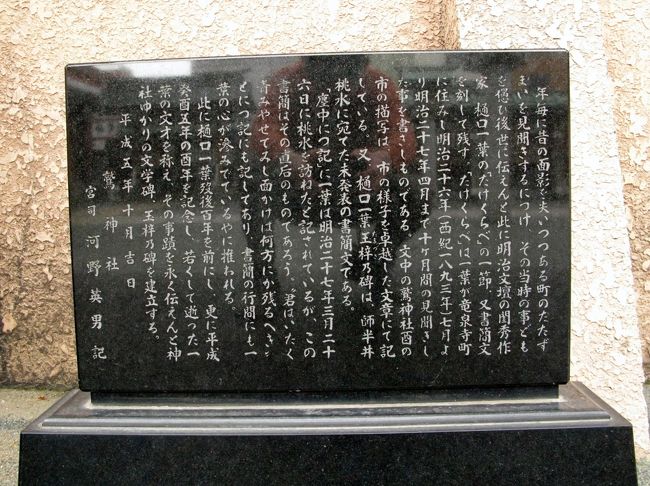 年毎に昔の面影を失いつつある町のたたず
まいを見聞きするにつけ、その当時の事ども
を偲び後世に伝えんと此に明治文壇の閨秀作
家 樋口一葉のたけくらべの一節、又書簡文
を刻して残す。たけくらべは一葉が竜泉寺町
に住みし明治二十六年(西紀一八九三年)七月よ
り明治二十七年四月まで十ヶ月間の見聞きし
た事を書きしものである。文中の鷲神社酉の
市の描写は、市の様子を卓越した文章にて記
している。又、樋口一葉玉梓乃碑は、師半井
桃水に宛てた未発表の書簡文である。
塵中につ記に一葉は明治二十七年三月二十
六日に桃水を訪ねたと記されているが、この
書簡はその直后のものであろう。君はいたく
やせてみし面かげは何方にか残るべき
とにつ記にも記してあり、書簡の行間にも一
葉の心が滲みているやに推われる。
此に樋口一葉歿後百年を前にし、更に平成
癸酉五年の酉年を記念し、若くして逝った一
葉の文才を称え、その事蹟を永く伝えんと神
社ゆかりの文学碑、玉梓乃碑を建立する。
平成五年十月吉日
鷲神社
宮司 河野英男 記